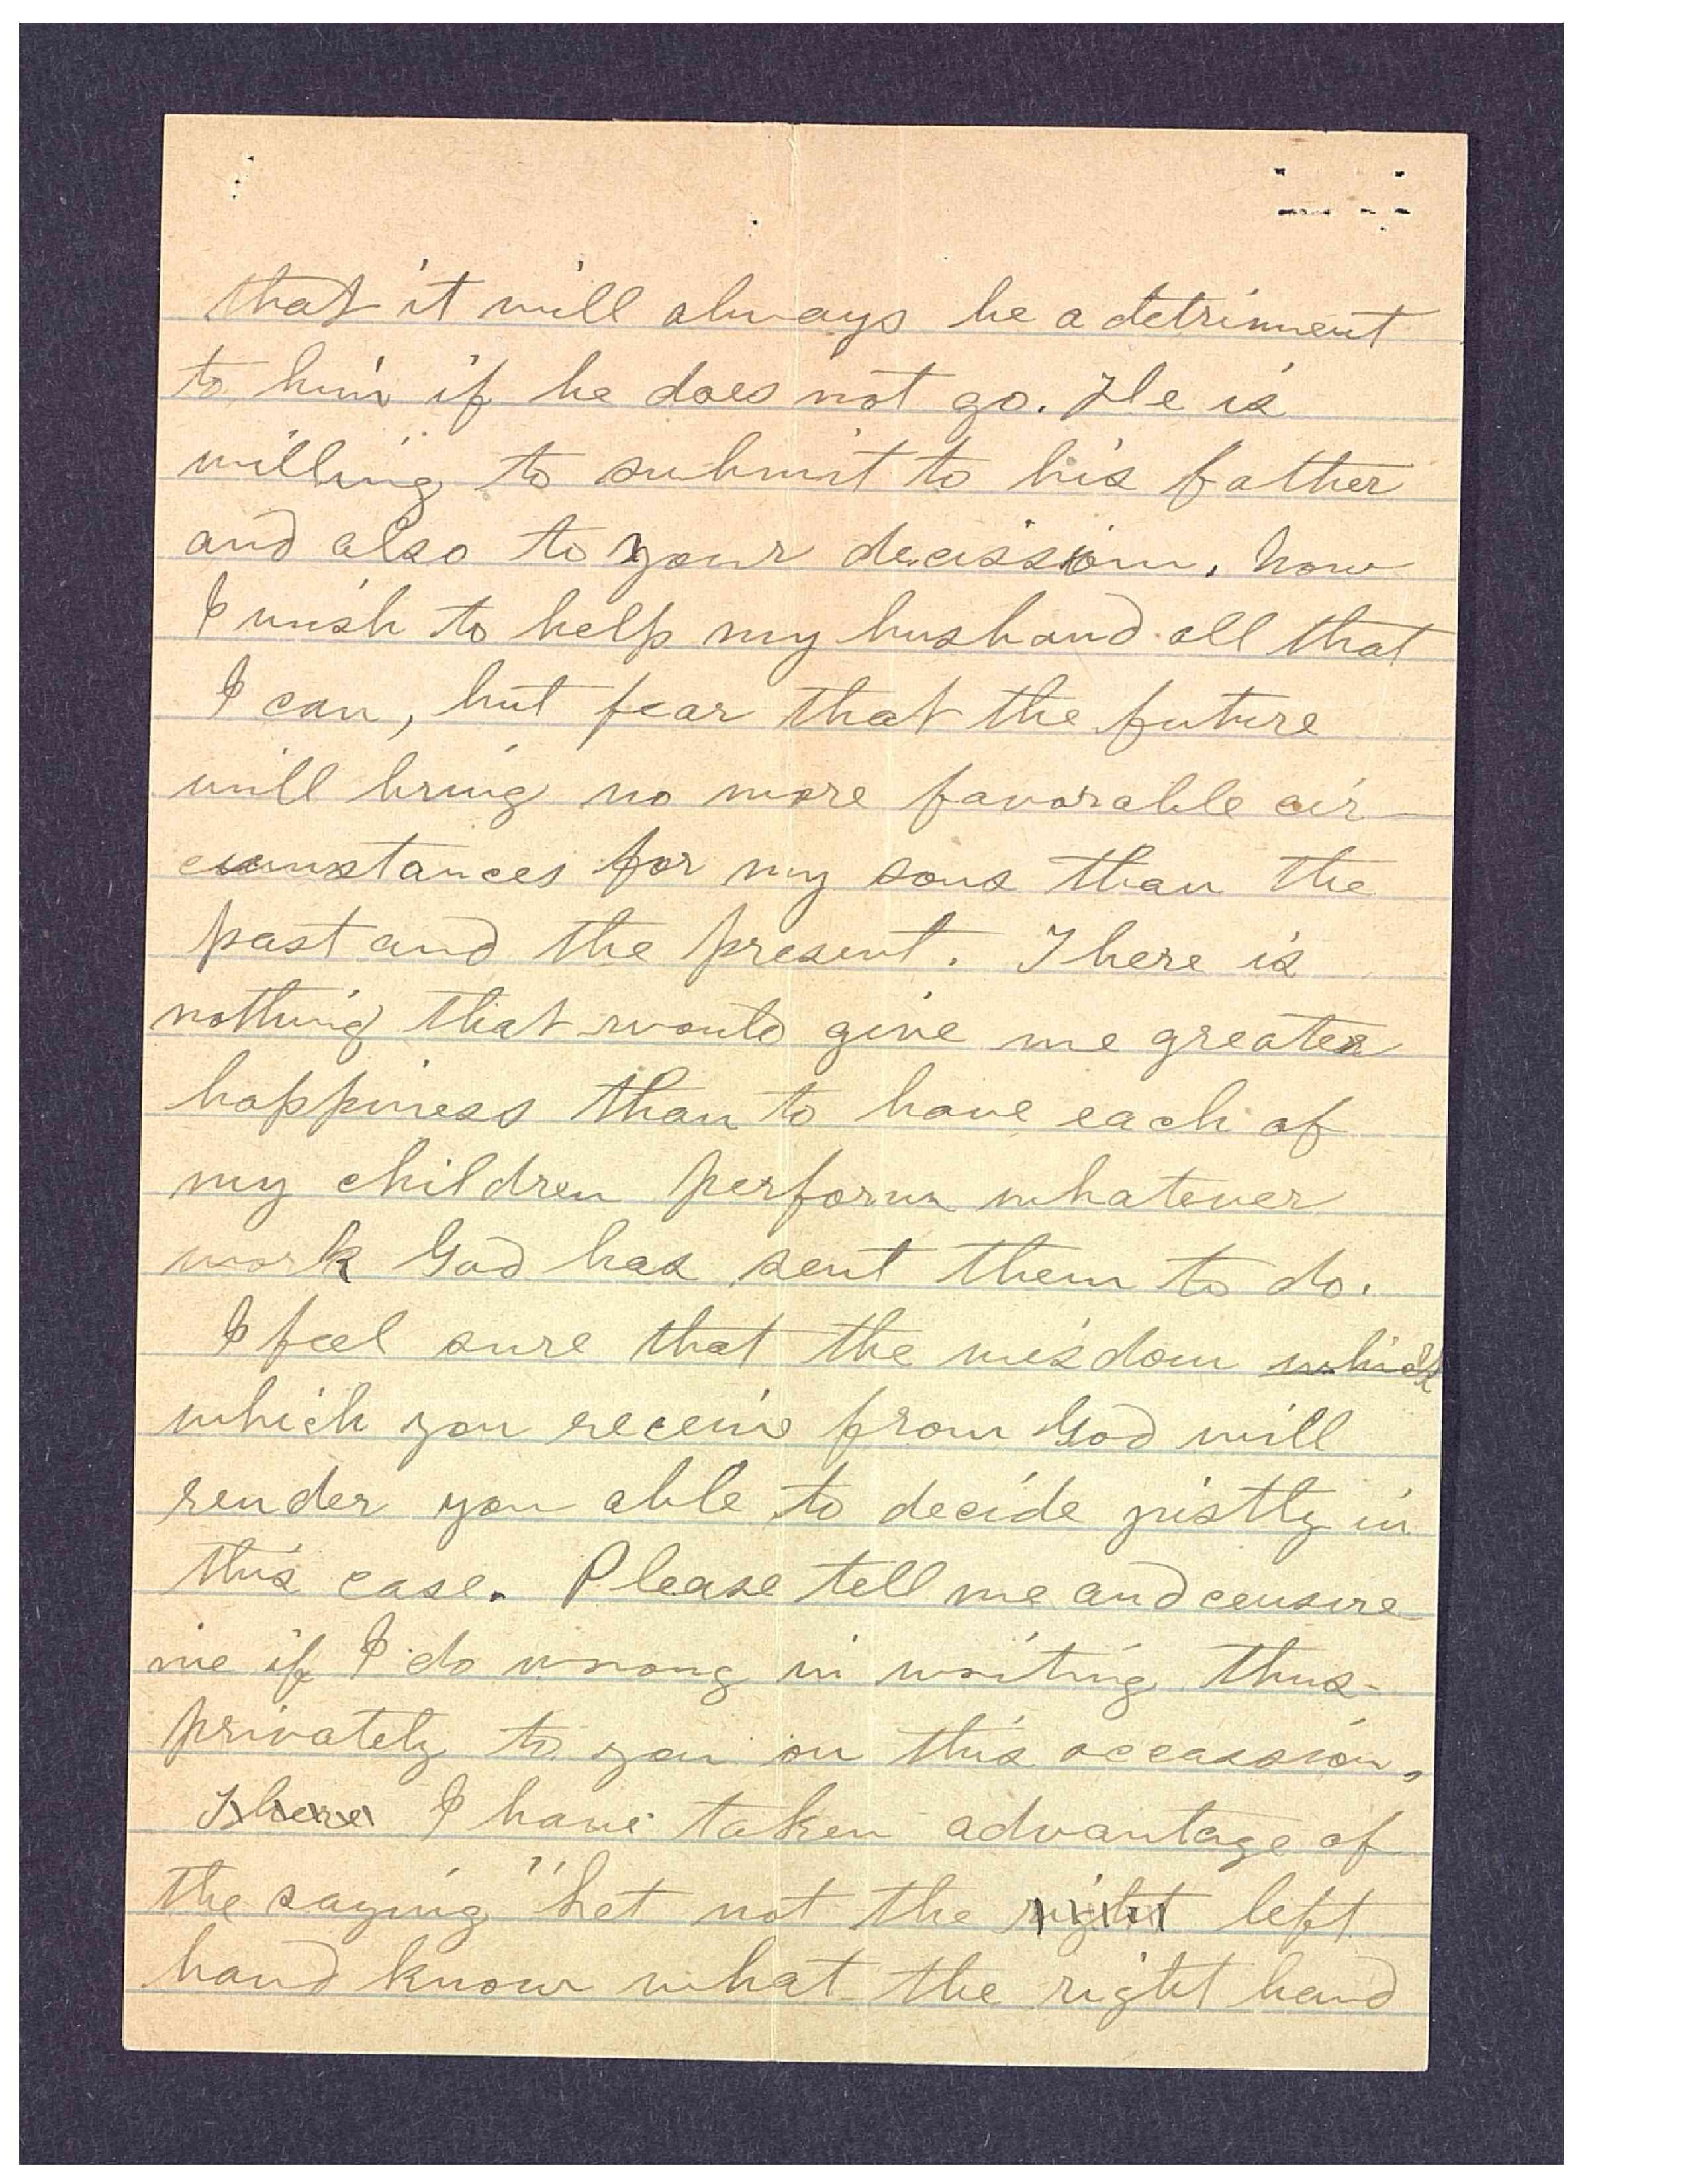 that it will always be a detriment
to him if he does not go. He is
willing to submit to his father
and also to your decission. Now
I wish to help my husband all that
I can, but fear that the future
will bring no more favorable cir
cumstances for my sons than the
past and the present. There is
nothing that would give me greater
happiness than to have each of
my children perform whatever
work God has sent them to do.
I feel sure that the wisdom which
which you receive from God will
render you able to decide justly in
this case. Please tell me and censure
me if I do wrong in writing thus
privately to you on this occassion,
There I have taken advantage of
the saying "Let not the right left
hand know what the right hand